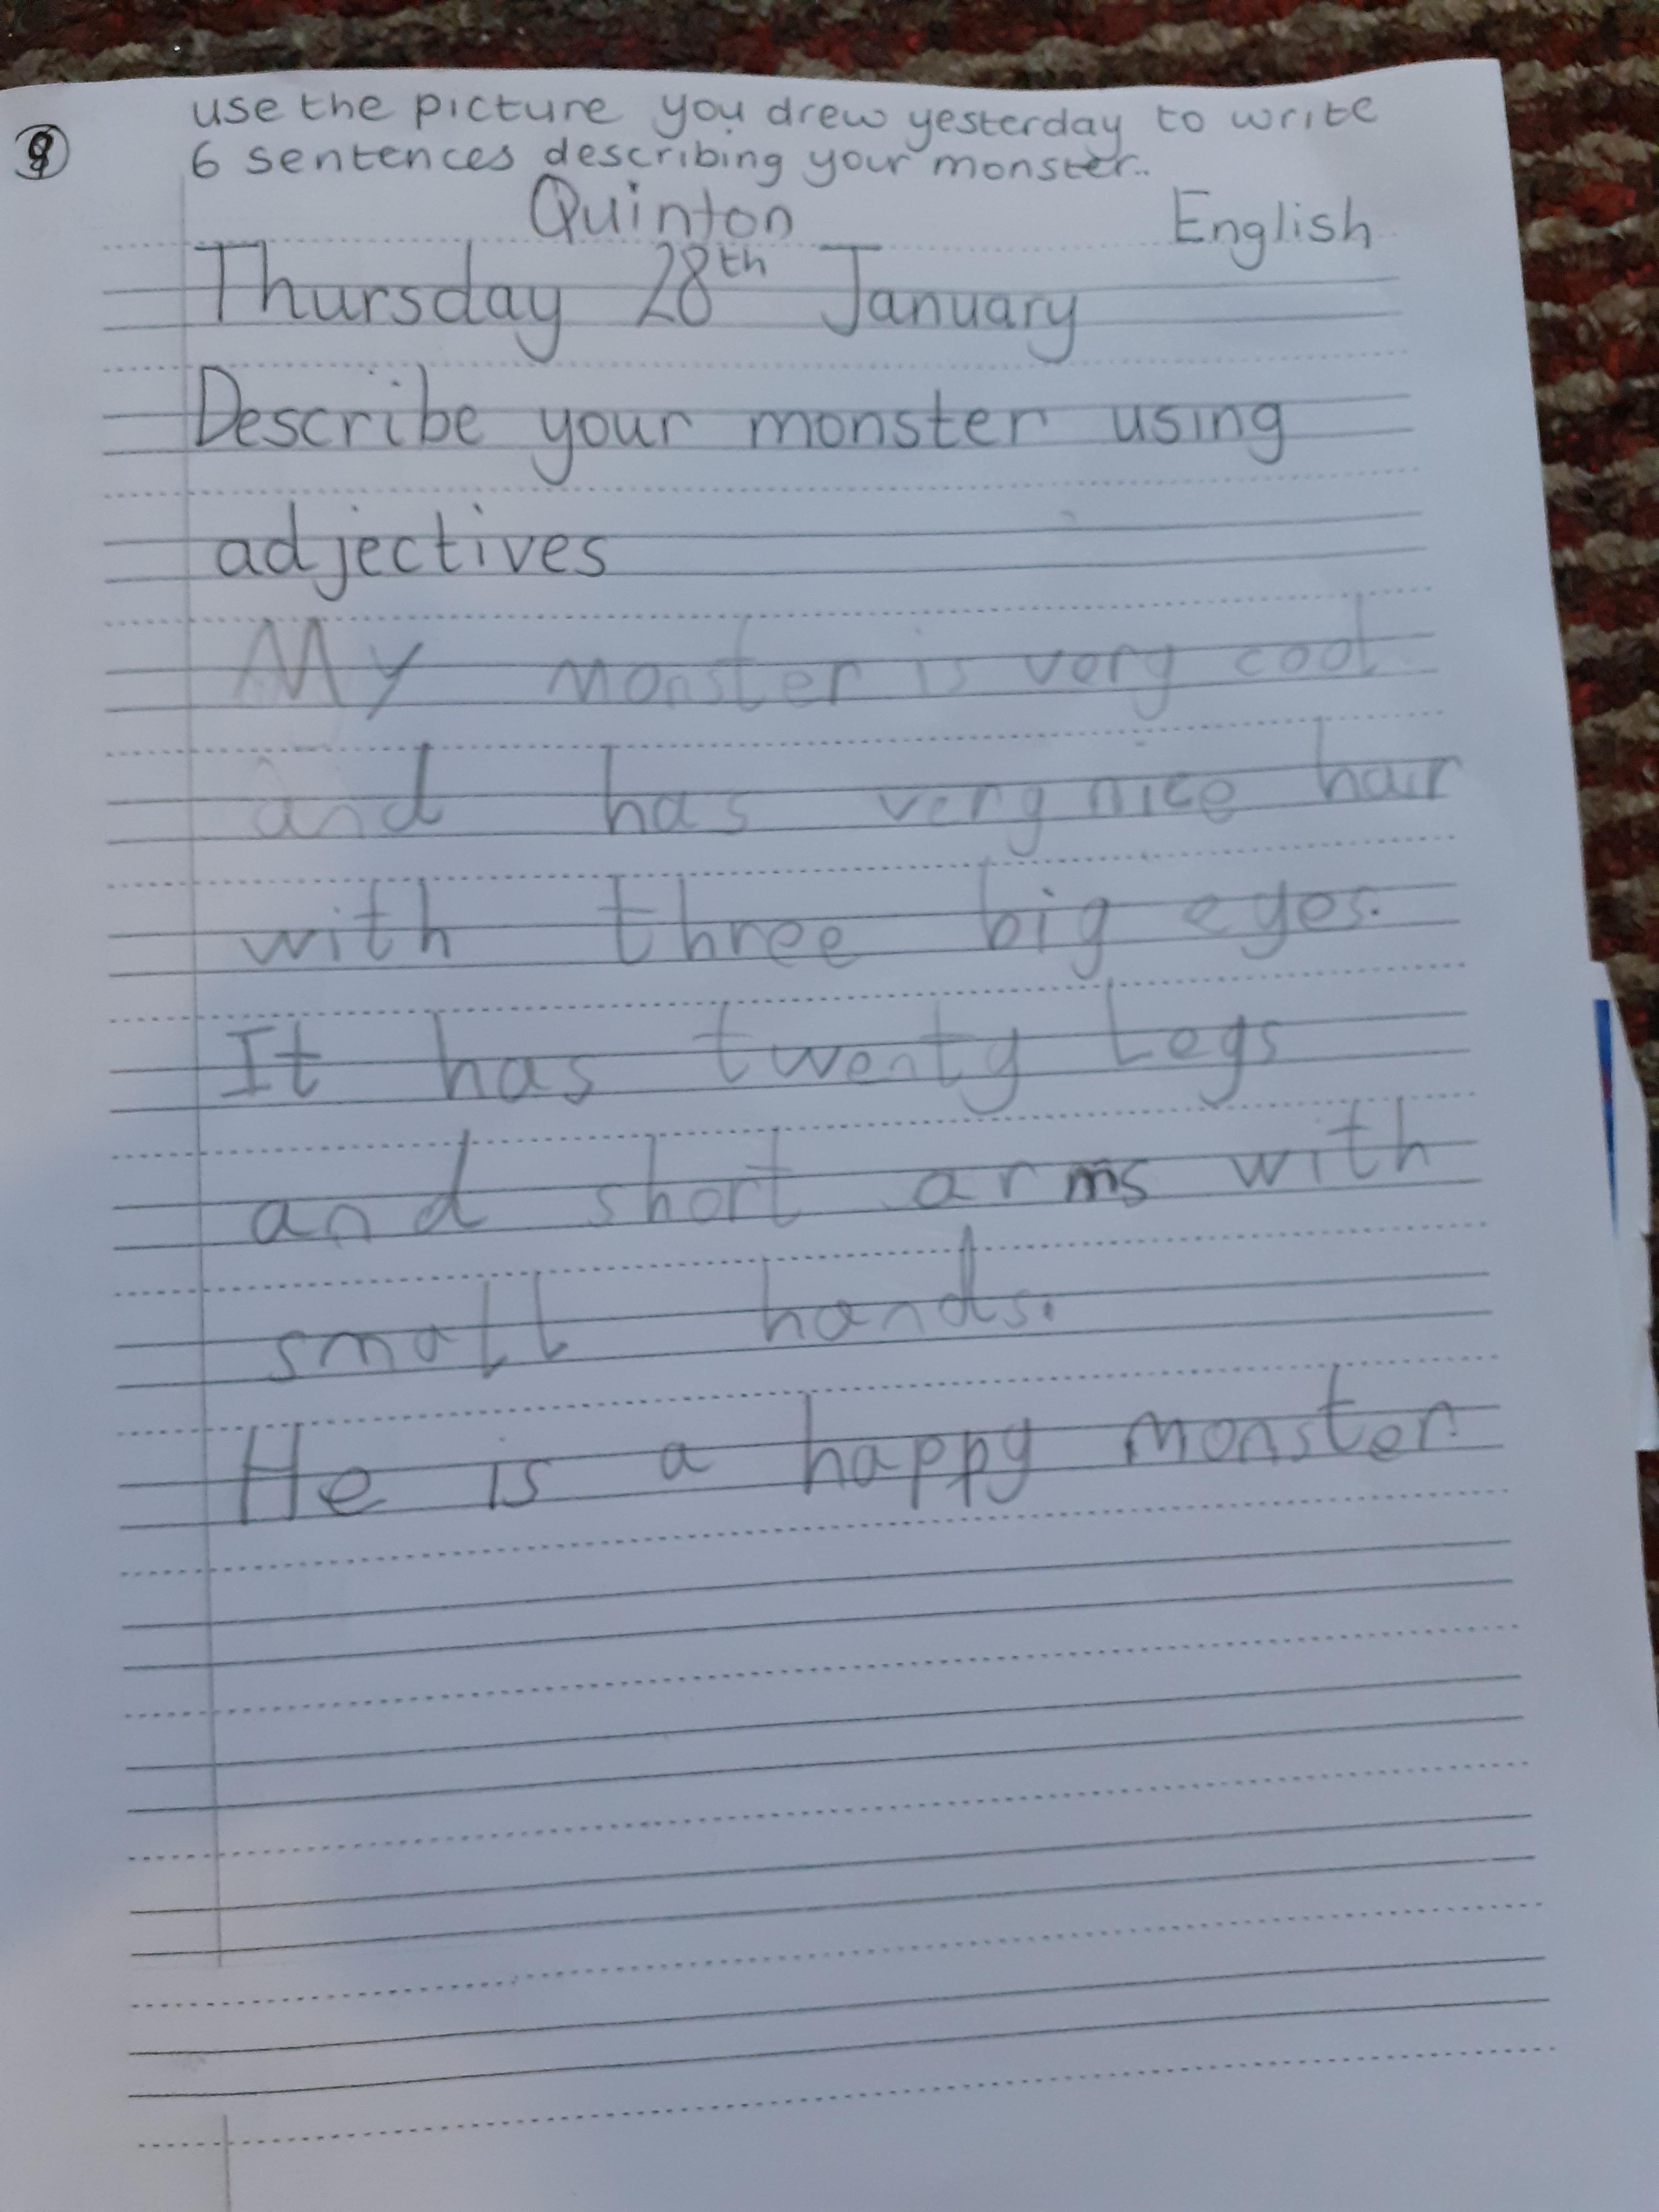 use the picture you drew yesterday to write
6 sentences describing your monster..
Quinton English
Thursday 28th January
Describe your monster using
adjectives
My monster is very cool
and has very nice hair
with three big eyes.
It has twenty legs
and short arms with
small hands.
He is a happy monster.